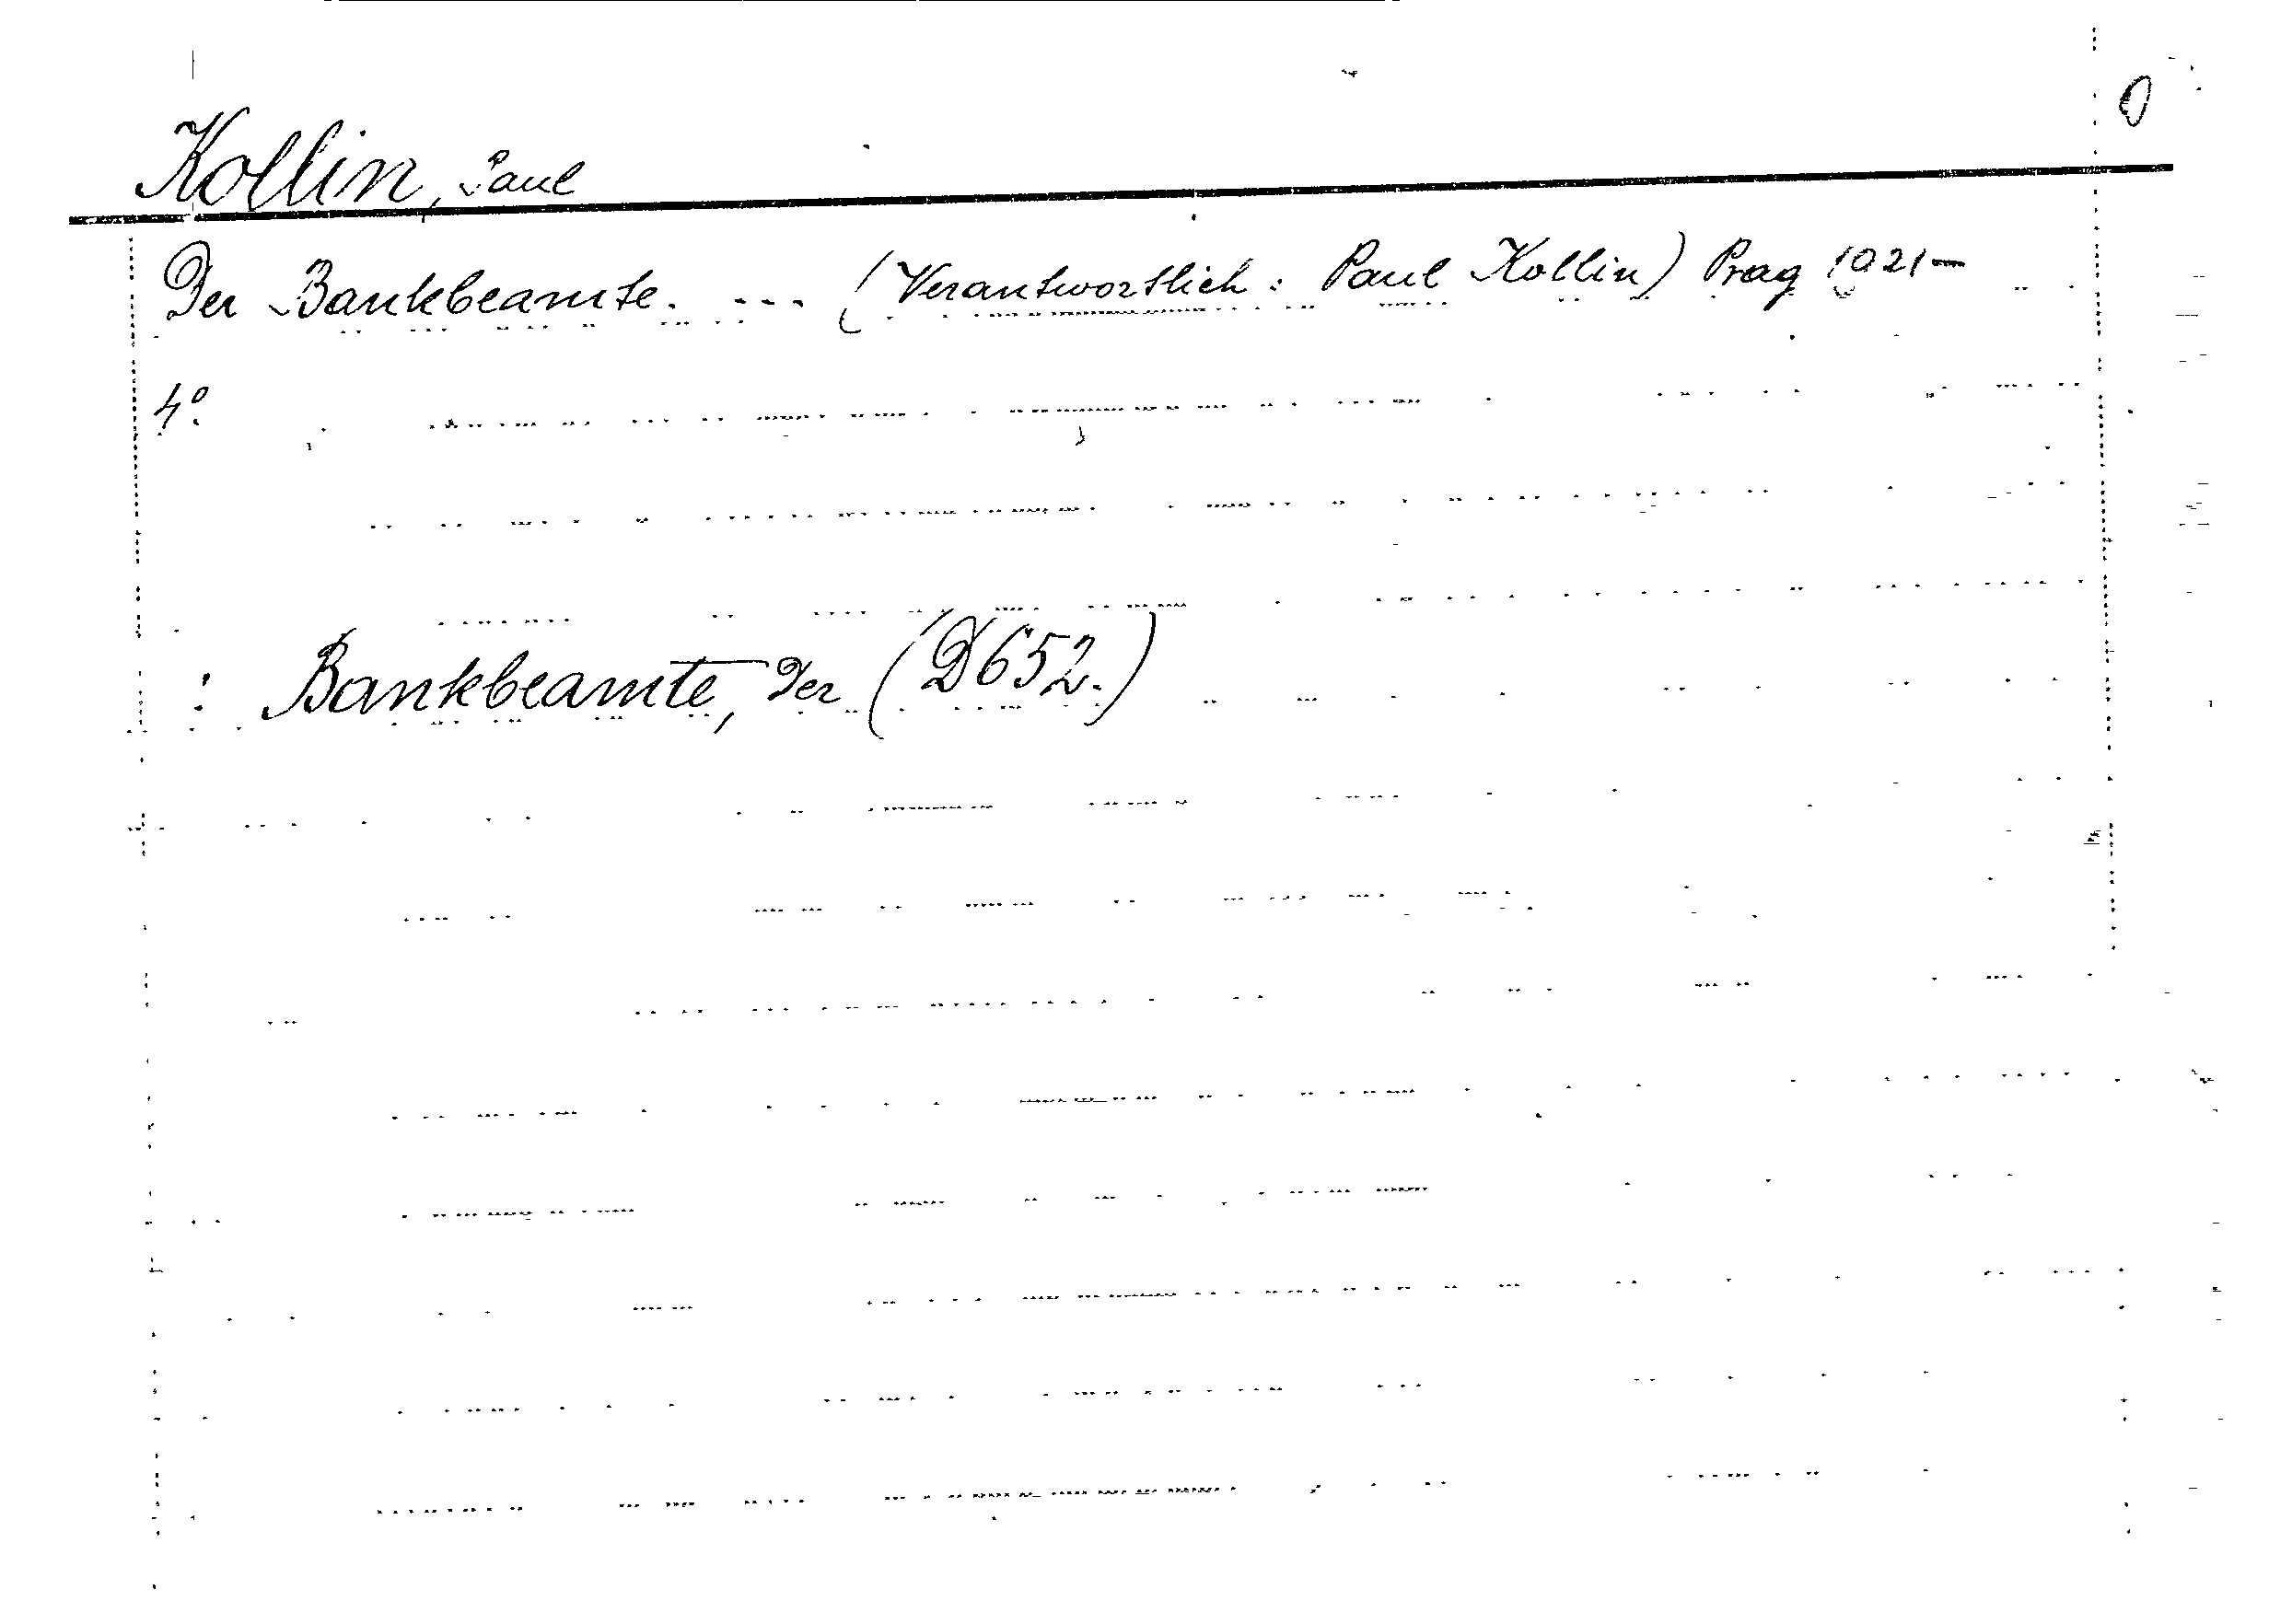 Kollin, Paul
Der Bankbeamte. --- (Verantwortlich: Paul Kollin) Prag 1921—
4°.
: Bankbeamte, Der (D652.)